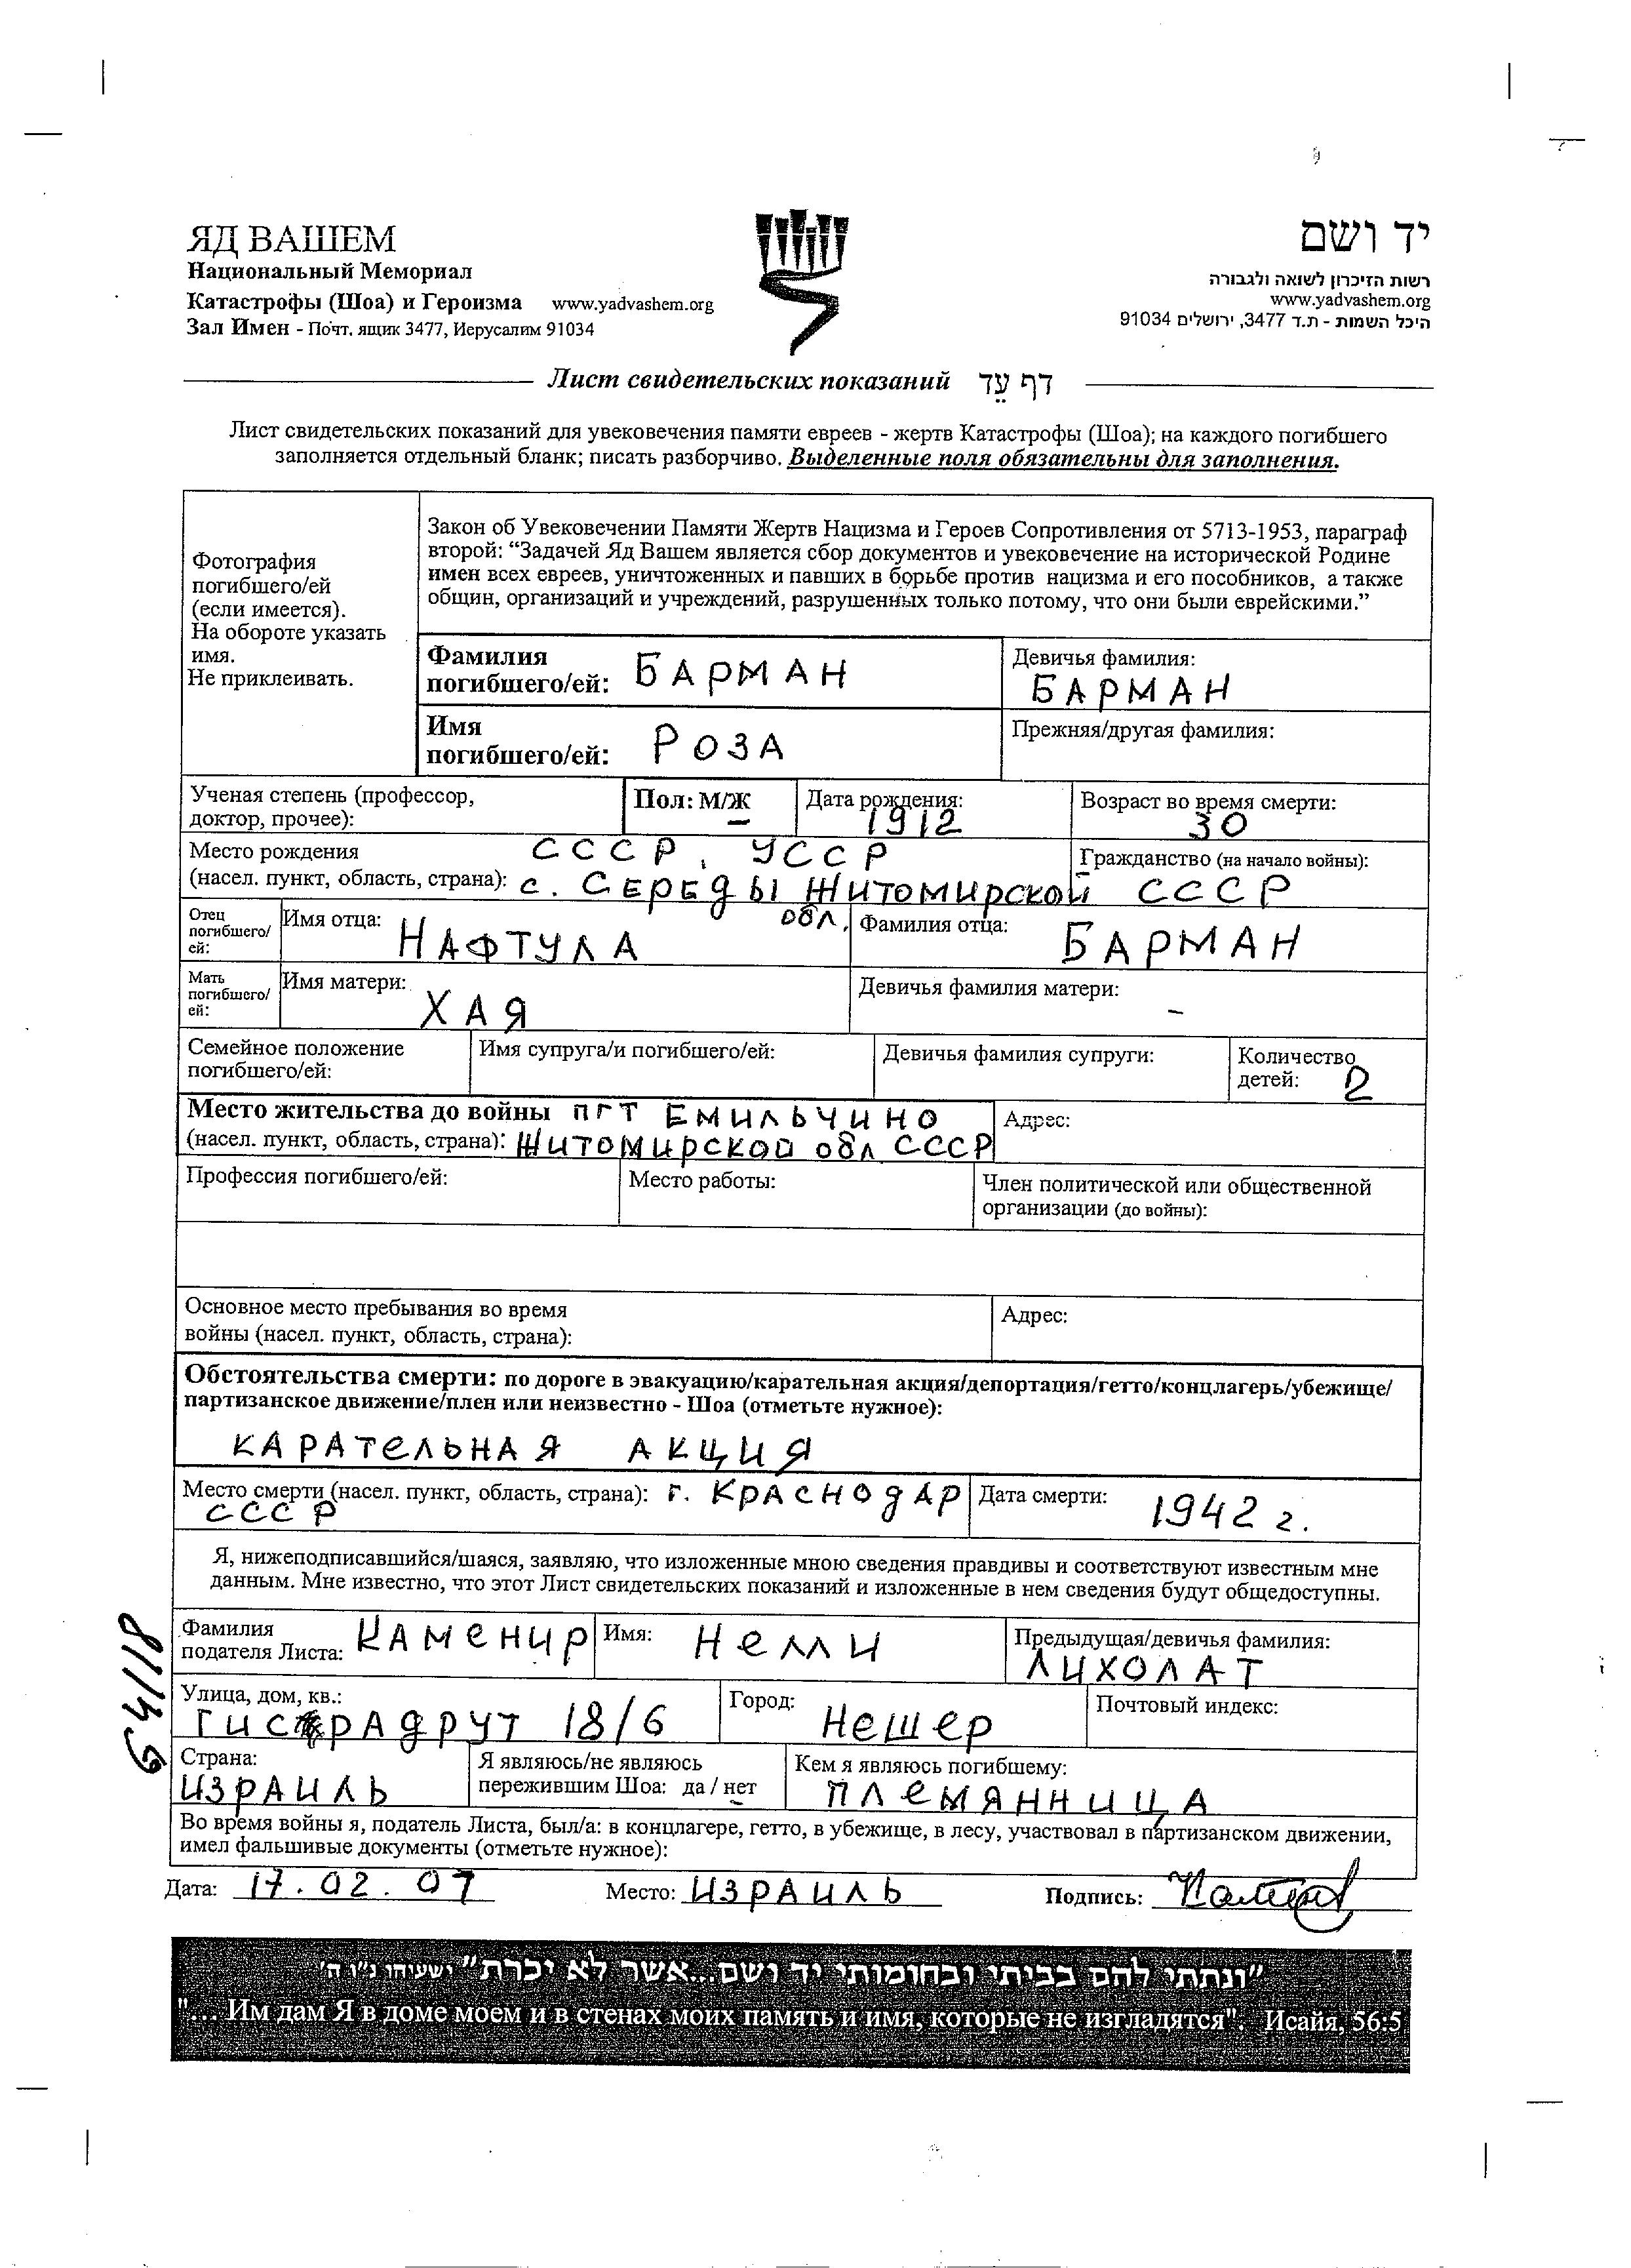 ЯД ВАШЕМ
Национальный Мемориал
Катастрофы (Шоа) и Героизма www.yadvashem.org
Зал Имен - Почт. ящик 3477, Иерусалим 91034
יד ושם
רשות הזיכרון לשואה ולגבורה
www.yadvashem.org
היכל השמות - ת.ד 3477, ירושלים 91034
Лист свидетельских показаний דף עֵד
Лист свидетельских показаний для увековечения памяти евреев - жертв Катастрофы (Шоа); на каждого погибшего
заполняется отдельный бланк; писать разборчиво. Выделенные поля обязательны для заполнения.
Фотография
погибшего/ей
(если имеется).
На обороте указать
имя.
Не приклеивать.
Закон об Увековечении Памяти Жертв Нацизма и Героев Сопротивления от 5713-1953, параграф
второй: “Задачей Яд Вашем является сбор документов и увековечение на исторической Родине
имен всех евреев, уничтоженных и павших в борьбе против нацизма и его пособников, а также
общин, организаций и учреждений, разрушенных только потому, что они были еврейскими.”
Фамилия
погибшего/ей: БАРМАН
Девичья фамилия:
БАРМАН
Имя
погибшего/ей: РОЗА
Прежняя/другая фамилия:
Ученая степень (профессор,
доктор, прочее):
Пол: М/Ж
Дата рождения:
1912
Возраст во время смерти:
30
Место рождения СССР, УССР
(насел. пункт, область, страна): с. СЕРЕДЫ ЖИТОМИРСКОЙ
обл,
Гражданство (на начало войны):
СССР
Отец
погибшего/
ей:
Имя отца:
НАФТУЛА
Фамилия отца:
БАРМАН
Мать
погибшего/
ей:
Имя матери:
ХАЯ
Девичья фамилия матери:
–
Семейное положение
погибшего/ей:
Имя супруга/и погибшего/ей:
Девичья фамилия супруги:
Количество
детей: 2
Место жительства до войны ПГТ ЕМИЛЬЧИНО
(насел. пункт, область, страна): ЖИТОМИРСКОЙ обл СССР
Адрес:
Профессия погибшего/ей:
Место работы:
Член политической или общественной
организации (до войны):
Основное место пребывания во время
войны (насел. пункт, область, страна):
Адрес:
Обстоятельства смерти: по дороге в эвакуацию/карательная акция/депортация/гетто/концлагерь/убежище/
партизанское движение/плен или неизвестно - Шоа (отметьте нужное):
КАРАТЕЛЬНАЯ АКЦИЯ
Место смерти (насел. пункт, область, страна): г. КРАСНОДАР
СССР
Дата смерти: 1942 г.
Я, нижеподписавшийся/шаяся, заявляю, что изложенные мною сведения правдивы и соответствуют известным мне
данным. Мне известно, что этот Лист свидетельских показаний и изложенные в нем сведения будут общедоступны.
Фамилия
подателя Листа: КАМЕНИР
Имя: НЕЛЛИ
Предыдущая/девичья фамилия:
ЛИХОЛАТ
Улица, дом, кв.:
ГИСТРАДРУТ 18/6
Город: НЕШЕР
Почтовый индекс:
Страна:
ИЗРАИЛЬ
Я являюсь/не являюсь
пережившим Шоа: да / нет
Кем я являюсь погибшему:
ПЛЕМЯННИЦА
Во время войны я, податель Листа, был/а: в концлагере, гетто, в убежище, в лесу, участвовал в партизанском движении,
имел фальшивые документы (отметьте нужное):
Дата: 17.02.07 Место: ИЗРАИЛЬ Подпись:
"ונתתי להם בביתי ובחומותי יד ושם...אשר לא יכרת" ישעיהו נ"ו ה'
"... Им дам Я в доме моем и в стенах моих память и имя, которые не изгладятся". Исайя, 56:5